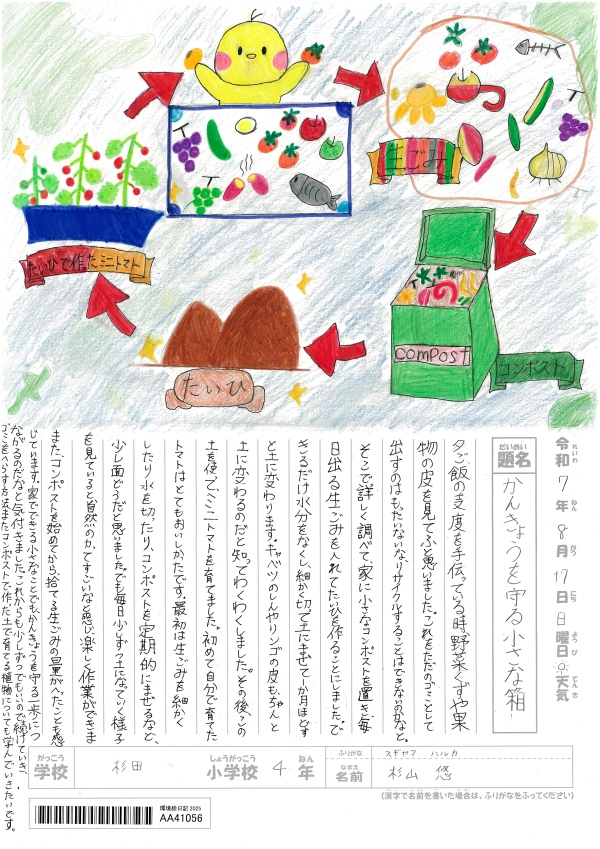 生ごみ
たいひで作ったミニトマト
COMPOST
コンポスト
たいひ
令和7年8月17日日曜日 天気
れいわ ねん がつ にち ようび てんき
だいめい
題名
かんきょうを守る小さな箱!
夕ご飯の支度を手伝っている時、野菜くずや果
物の皮を見てふと思いました。これをただのゴミとして
出すのはもったいないな、リサイクルすることはできないのかなと。
そこで詳しく調べて、家に小さなコンポストを置き、毎
日出る生ごみを入れてたいひを作ることにしました。で
きるだけ水分をなくし、細かく切って土にまぜて一か月ほどする
と土に変わります。キャベツのしんやリンゴの皮も、ちゃんと
土に変わるのだと知ってわくわくしました。その後、この
土を使ってミニトマトを育てました。初めて自分で育てた
トマトはとてもおいしかったです。最初は生ごみを細かく
したり水を切ったり、コンポストを定期的にまぜるなど、
少し面どうだと思いました。でも毎日少しずつ土になっていく様子
を見ていると自然の力ってすごいなと感じ、楽しく作業ができま
また、コンポストを始めてから、捨てる生ごみの量がへったことも感
じています。家でできる小さなことでもかんきょうを守る一歩につ
ながるのだなと気付きました。これからも少しずつでもいいので続けていき、
ごみをへらす方法、またコンポストで作った土で育てる植物についても学んでいきたいです。
がっこう
学校
杉田
しょうがっこう
小学校
4
ねん
年
ふりがな
スギヤマ ハルカ
なまえ
名前
杉山 悠
(漢字で名前を書いた場合は、ふりがなをふってください)
環境絵日記 2025
AA41056